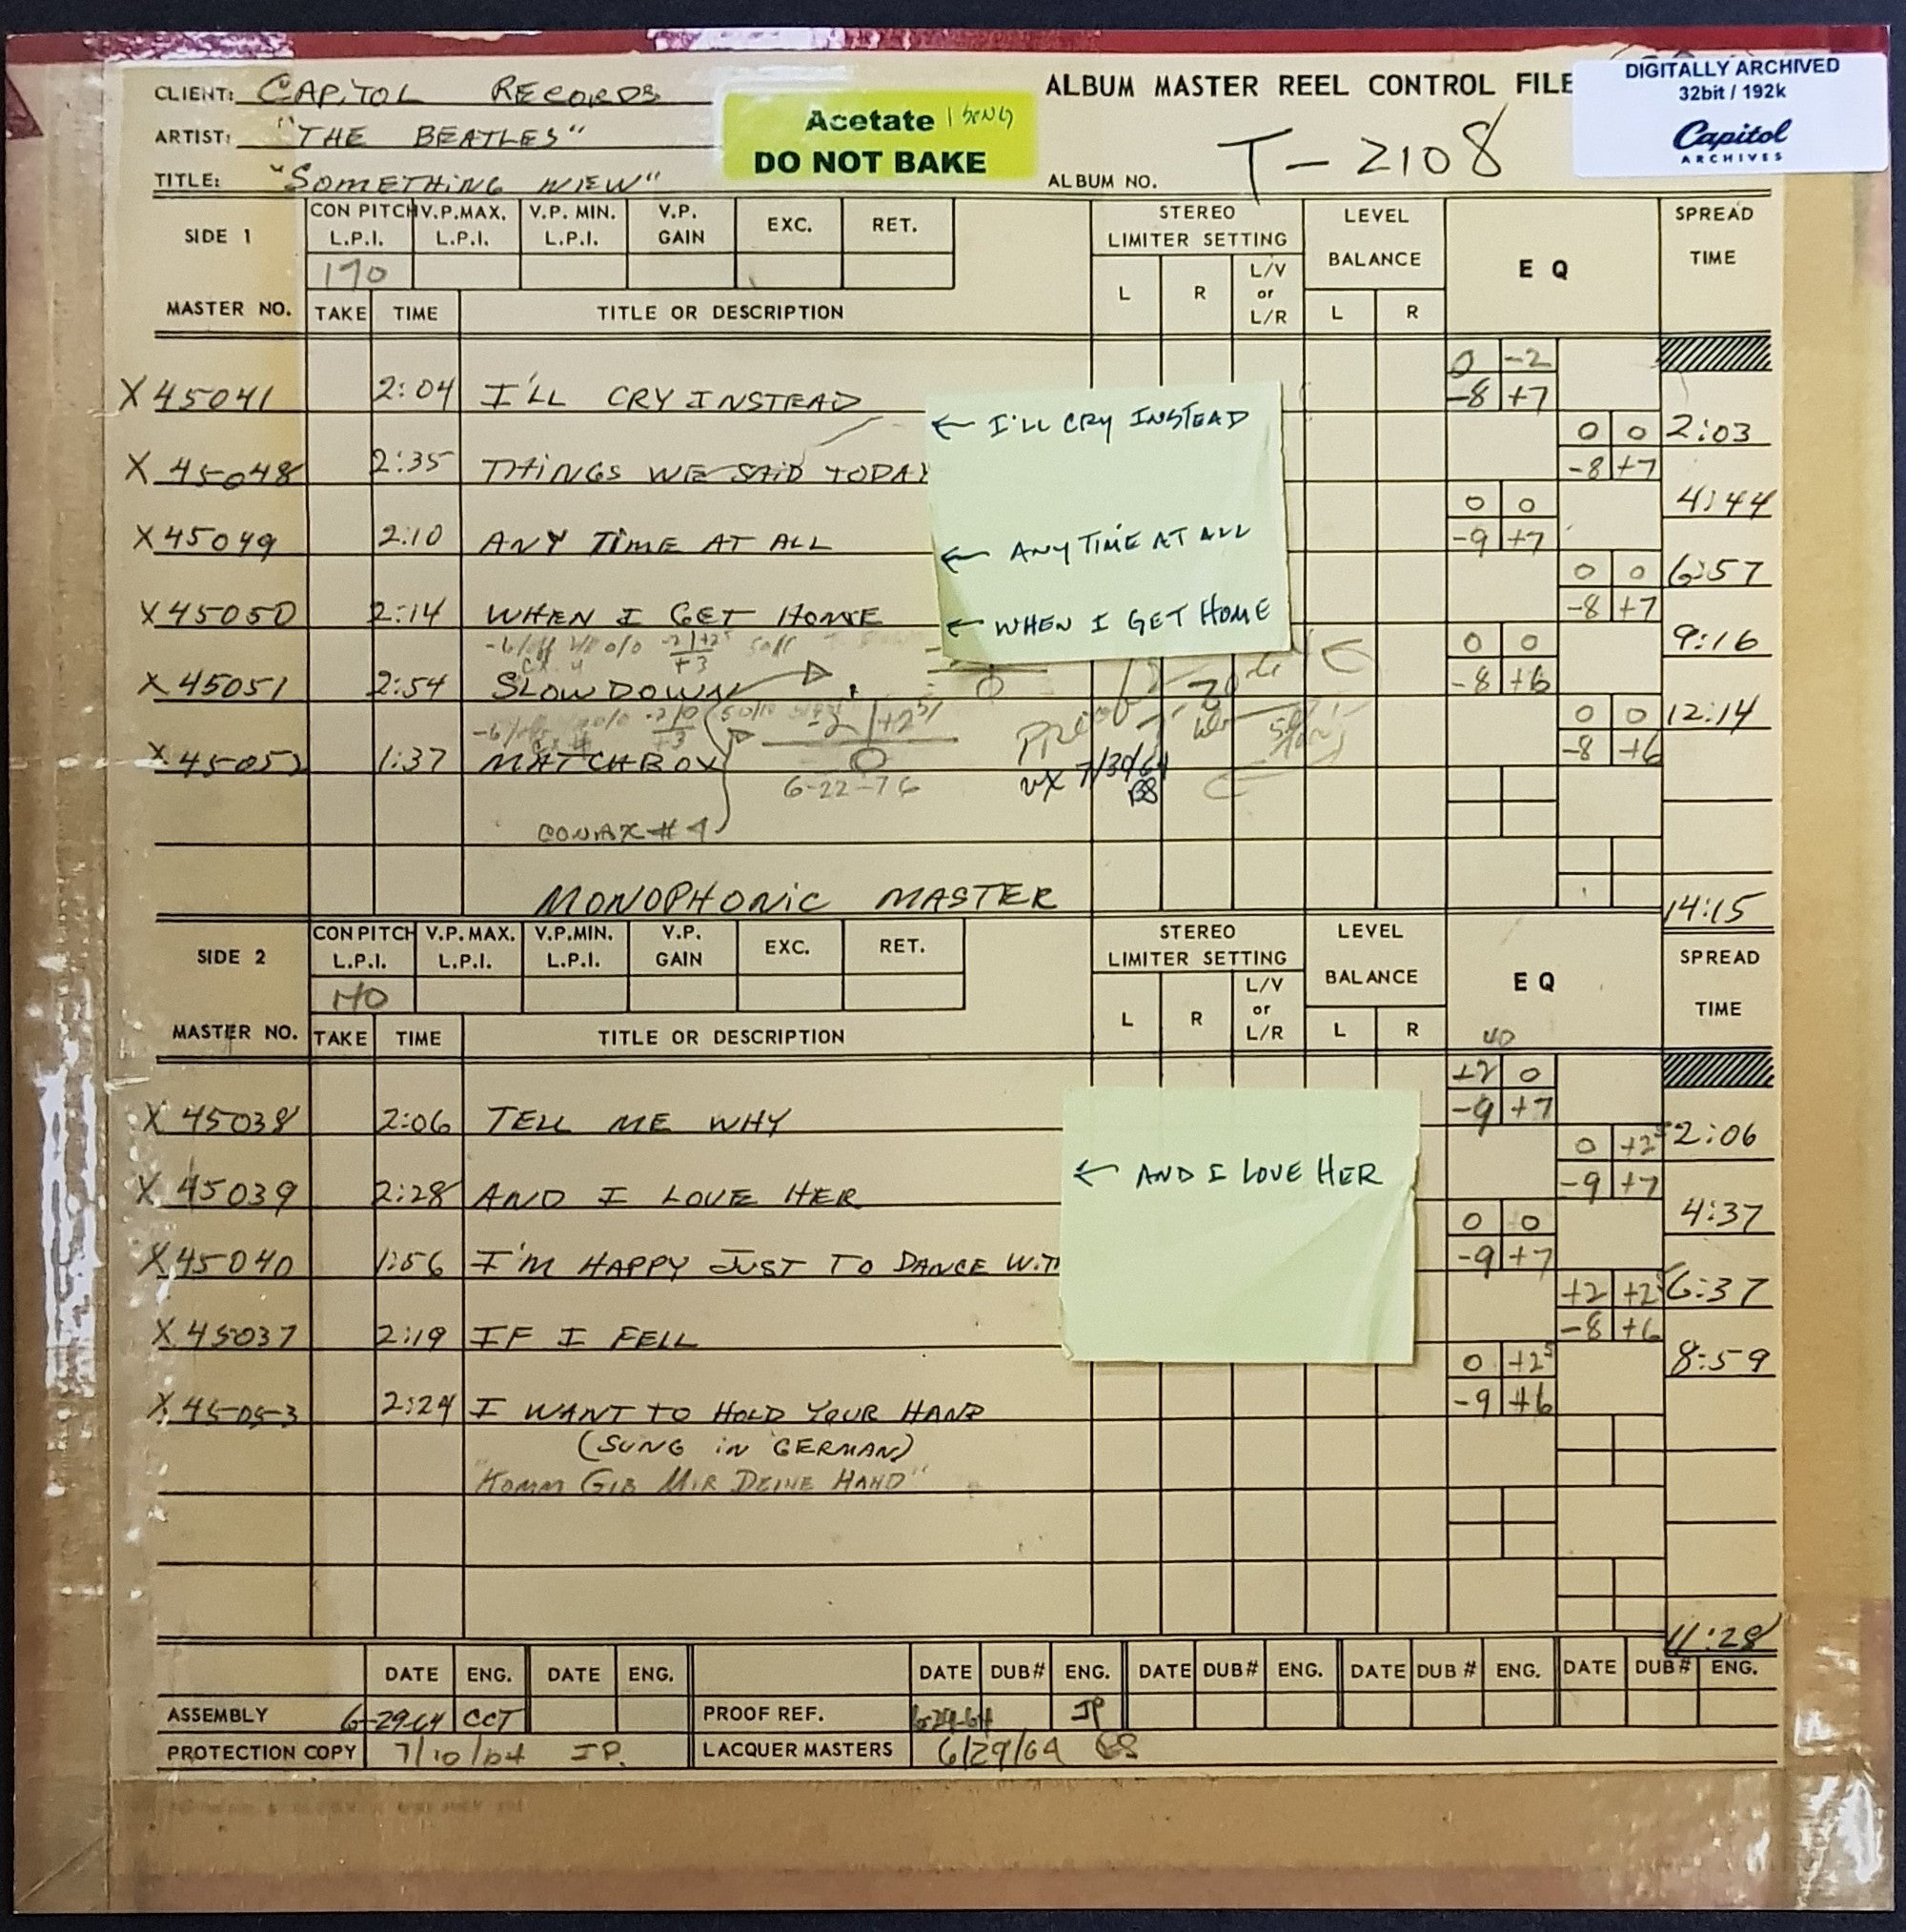 CLIENT: CAPITOL RECORDS
ALBUM MASTER REEL CONTROL FILE
DIGITALLY ARCHIVED
32bit / 192k
Capitol
ARCHIVES
Acetate 1 SONG
DO NOT BAKE
ARTIST: "THE BEATLES"
TITLE: "SOMETHING NEW"
ALBUM NO. T-2108
SIDE 1
CON PITCH L.P.I. V.P.MAX. L.P.I. V.P. MIN. L.P.I. V.P. GAIN EXC. RET.
STEREO LIMITER SETTING L R L/V or L/R
LEVEL BALANCE L R
E Q
SPREAD TIME
170
MASTER NO. TAKE TIME TITLE OR DESCRIPTION
0 -2
X 45041 2:04 I'LL CRY INSTEAD -8 +7
← I'LL CRY INSTEAD
0 0 2:03
X 45048 2:35 THINGS WE SAID TODAY -8 +7
0 0 4:44
X 45049 2:10 ANY TIME AT ALL -9 +7
← ANY TIME AT ALL
0 0 6:57
X 45050 2:14 WHEN I GET HOME -8 +7
← WHEN I GET HOME
0 0 9:16
X 45051 2:54 SLOW DOWN -8 +6
0 0 12:14
X 45052 1:37 MATCHBOX -8 +6
6-22-76
7/30/64
#4
MONOPHONIC MASTER
14:15
SIDE 2
CON PITCH L.P.I. V.P. MAX. L.P.I. V.P.MIN. L.P.I. V.P. GAIN EXC. RET.
STEREO LIMITER SETTING L R L/V or L/R
LEVEL BALANCE L R
E Q
SPREAD TIME
MASTER NO. TAKE TIME TITLE OR DESCRIPTION
40
+2 0
X 45038 2:06 TELL ME WHY -9 +7
0 +2 2:06
X 45039 2:28 AND I LOVE HER -9 +7
← AND I LOVE HER
0 0 4:37
X 45040 1:56 I'M HAPPY JUST TO DANCE WITH -9 +7
+2 +2 6:37
X 45037 2:19 IF I FELL -8 +6
0 +2⁵ 8:59
X 45053 2:24 I WANT TO HOLD YOUR HAND -9 +6
(SUNG IN GERMAN)
"KOMM GIB MIR DEINE HAND"
11:28
DATE ENG. DATE ENG. DATE DUB# ENG. DATE DUB# ENG. DATE DUB # ENG. DATE DUB# ENG.
ASSEMBLY 6-29-64 CCT PROOF REF. 6-29-64 JP
PROTECTION COPY 7/10/64 JP. LACQUER MASTERS 6/29/64